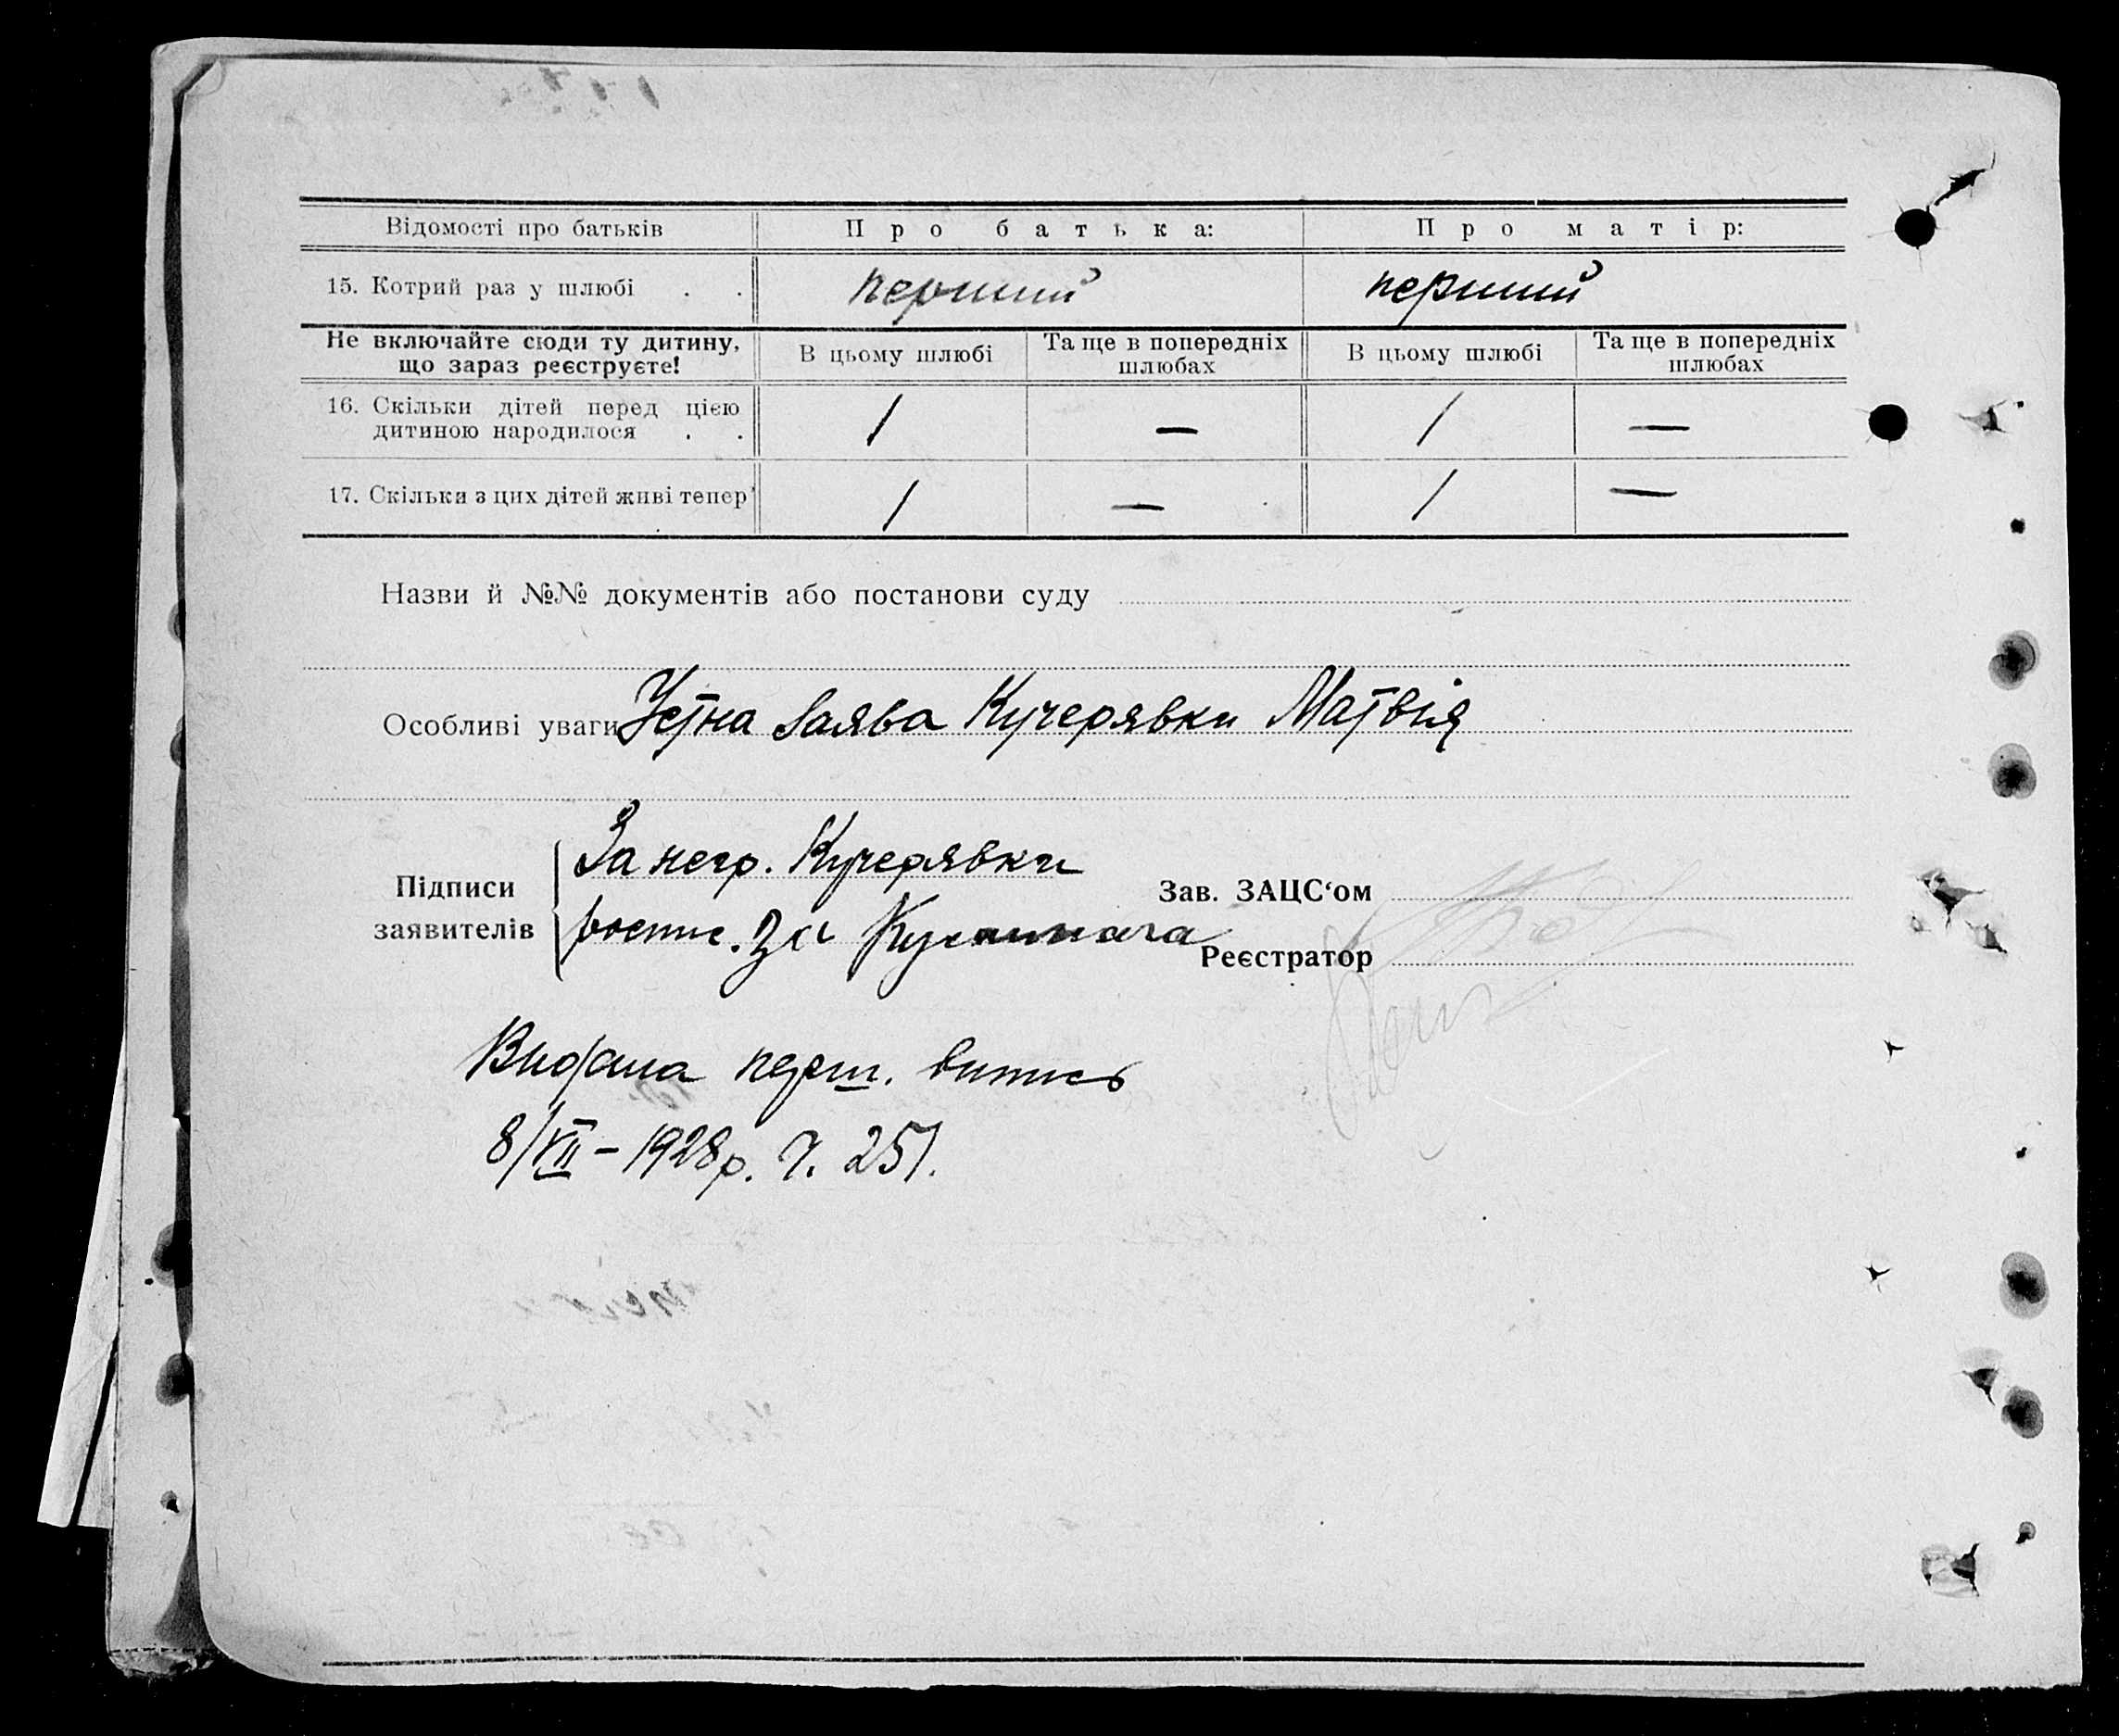 Відомості про батьків Про батька: Про матір:
15. Котрий раз у шлюбі . . перший перший
Не включайте сюди ту дитину, що зараз реєструєте! В цьому шлюбі Та ще в попередніх шлюбах В цьому шлюбі Та ще в попередніх шлюбах
16. Скільки дітей перед цією дитиною народилося . . 1 — 1 —
17. Скільки з цих дітей живі тепер 1 — 1 —
Назви й №№ документів або постанови суду
Особливі уваги Устна заява Кучерявки Матвія
Підписи заявителів
За негр. Кучерявки
роспис. За
Зав. ЗАЦС‘ом
Реєстратор
Видана перш. випись
8/VII – 1928 р. Ч. 251.